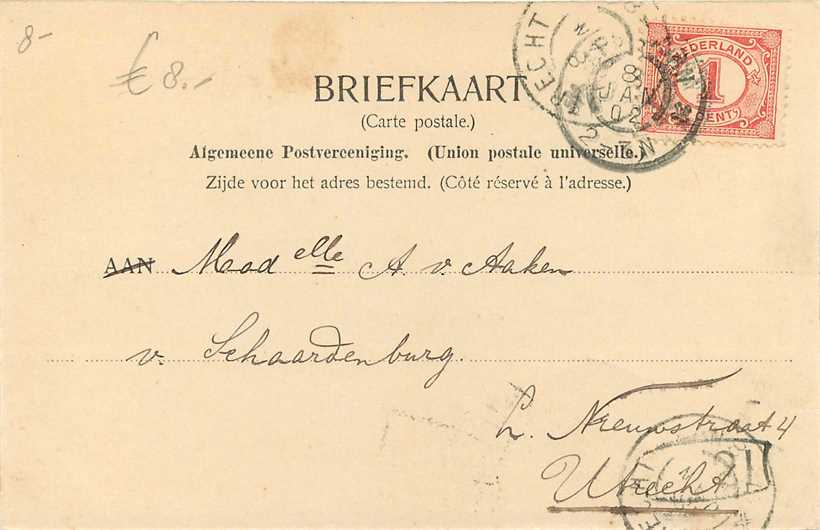 8-
€ 8.-
BRIEFKAART
(Carte postale.)
Algemeene Postvereeniging. (Union postale universelle.)
Zijde voor het adres bestemd. (Côté réservé à l'adresse.)
NEDERLAND
1
CENT
RECHT
8
JAN
02
2-7N
AAN Mad elle A. v. Aaken
v. Schaardenburg.
L. Nieuwstraat 4
Utrecht